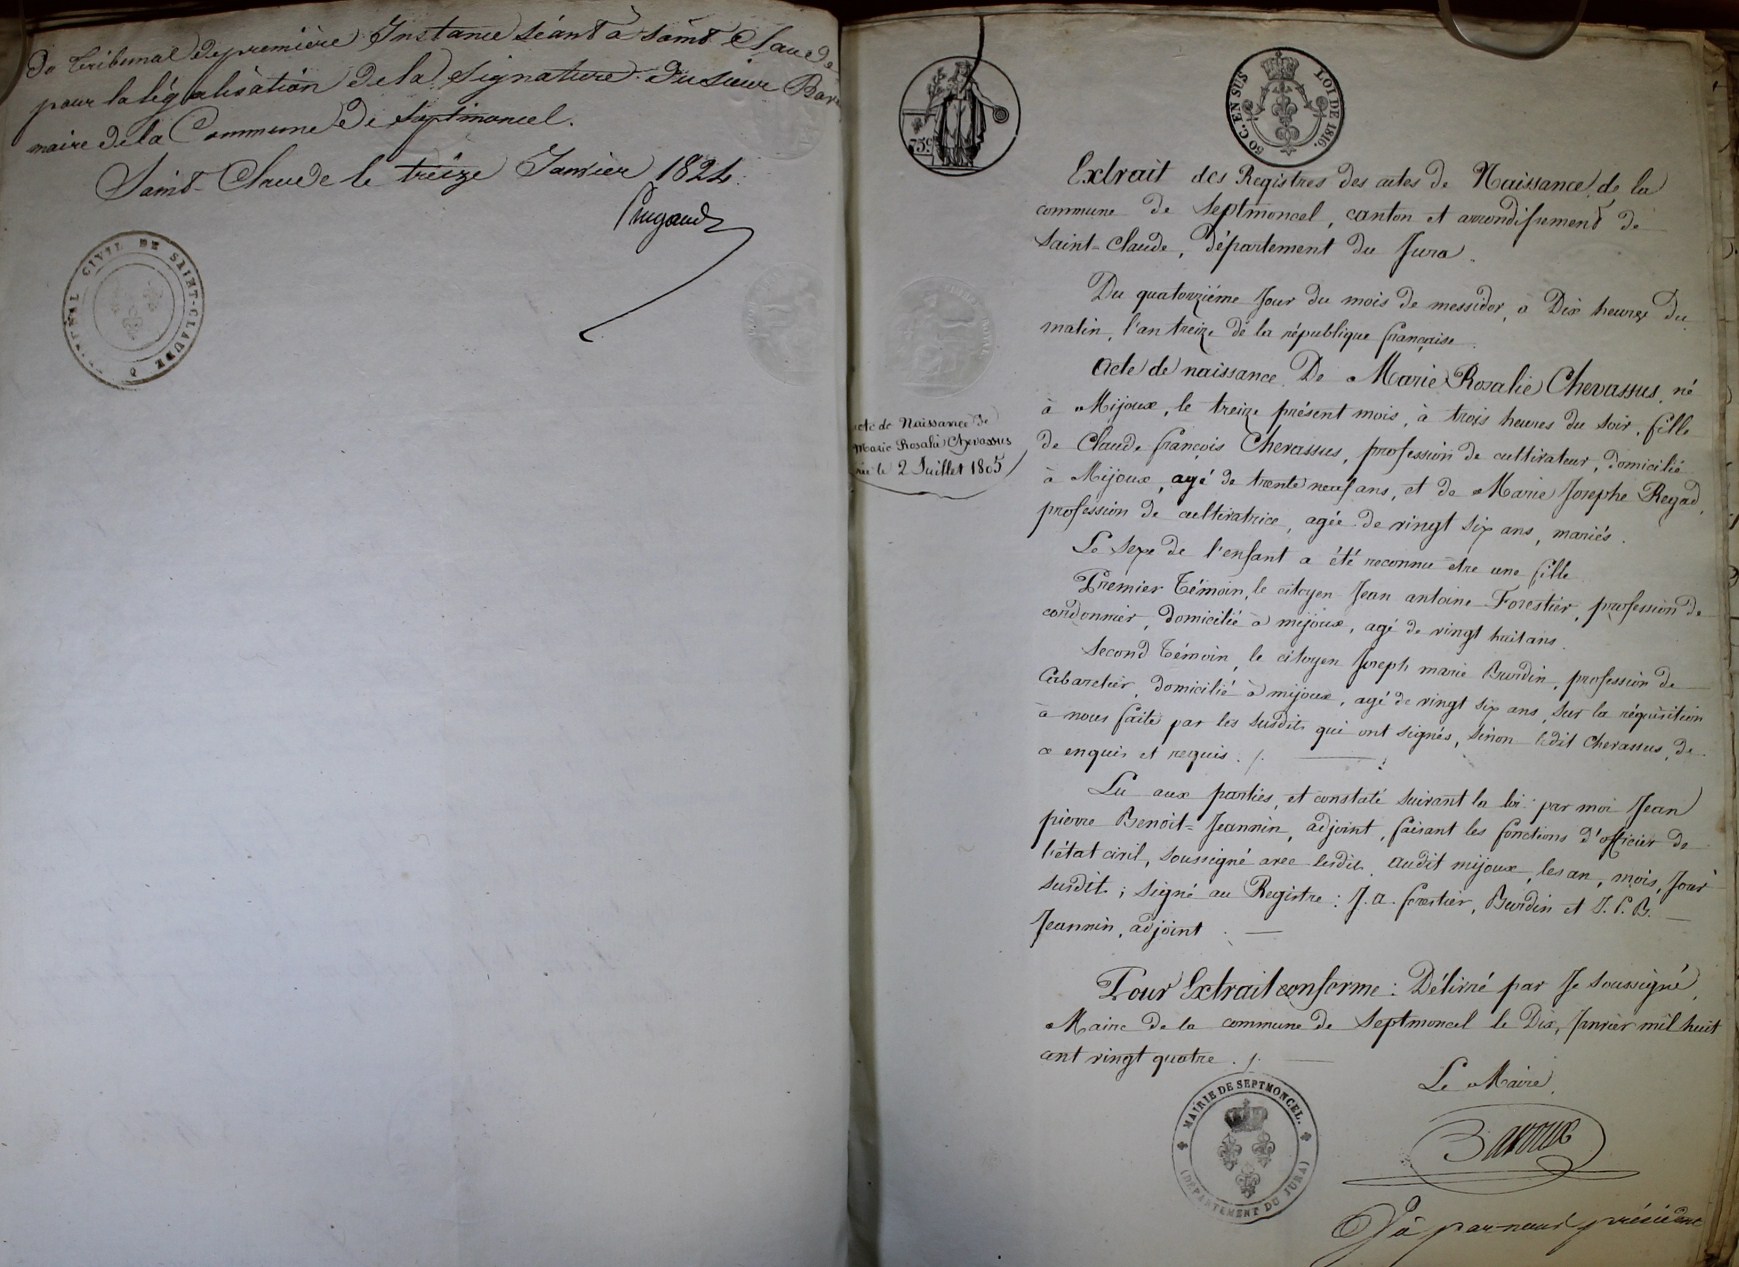 Du tribunal de première Instance séant à saint Claude
pour la légalisation de la signature du sieur
maire de la Commune de Septmoncel.
Saint-Claude le treize Janvier 1824.
CIVIL DE SAINT-CLAUDE
759
50 C. EN SUS
LOI DE 1816.
Extrait des Registres des actes de Naissance de la
commune de Septmoncel, canton et arrondissement de
Saint-Claude, département du Jura.
Du quatorzième Jour du mois de messidor, à Dix heures du
matin, l'an treize de la république française.
Acte de naissance De Marie Rosalie Chevassus, né
à Mijoux, le treize présent mois, à trois heures du soir, fille
de Claude françois Chevassus, profession de cultivateur, domicilié
à Mijoux, agé de trente neuf ans, et de Marie Josephe Regad,
profession de cultivatrice, agée de vingt six ans, mariés.
Le sexe de l'enfant a été reconnu être une fille
Premier Témoin, le citoyen Jean antoine Forestier, profession de
cordonnier, domicilié à mijoux, agé de vingt huit ans.
Second Témoin, le citoyen Joseph marie Burdin, profession de
Cabaretier, domicilié à mijoux, agé de vingt six ans, sur la réquisition
à nous faite par les susdits qui ont signés, sinon ledit Chevassus, de
ce enquis et requis. /.
Lu aux parties, et constaté suivant la loi par moi Jean
pierre Benoit-Jeannin, adjoint, faisant les fonctions d'officier de
l'état civil, soussigné avec lesdits, audit mijoux, les an, mois, Jour
susdits; signé au Registre: J. a. forestier, Burdin et J. P. B.
Jeannin, adjoint.
acte de Naissance de
Marie Rosalie Chevassus
née le 2 Juillet 1805
Pour Extrait conforme: Délivré par Je soussigné,
Maire de la commune de Septmoncel le Dix, Janvier mil huit
cent vingt quatre. /.
Le Maire,
MAIRIE DE SEPTMONCEL.
(DÉPARTEMENT DU JURA)
Vu par nous président